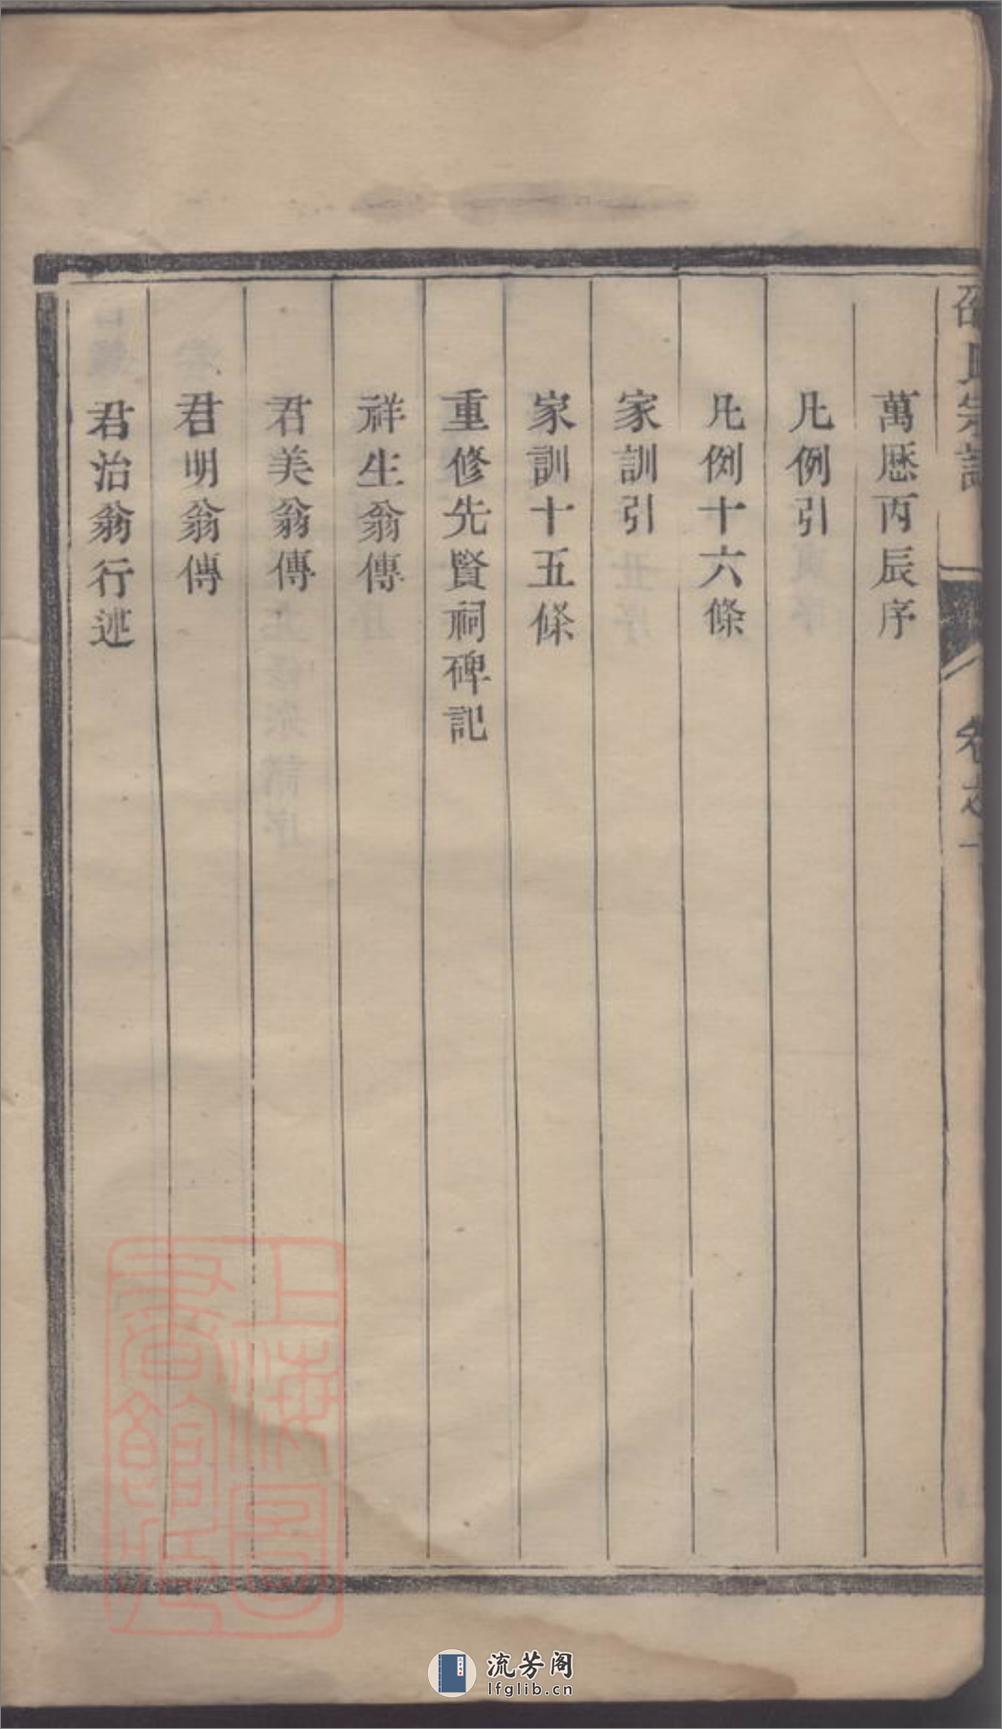 邵氏宗譜
卷之一
萬厯丙辰序
凡例引
凡例十六條
家訓引
家訓十五條
重修先賢祠碑記
祥生翁傳
君美翁傳
君明翁傳
君治翁行述
上海圖
書館藏
流芳阁
lfglib.cn